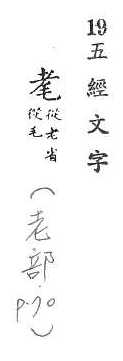 19五經文字
耄從老省從毛
(老部 p.70)